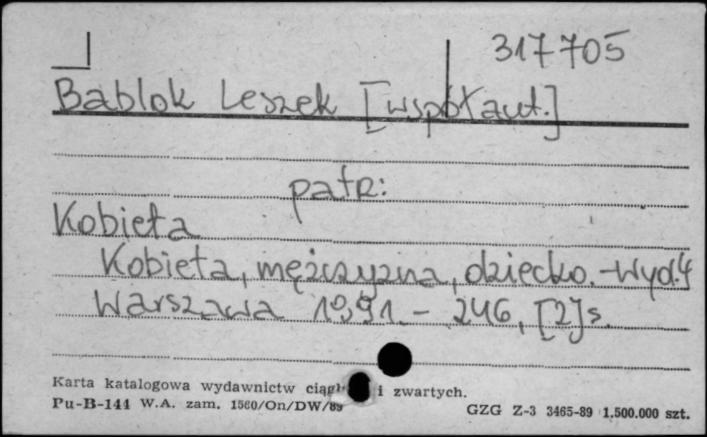 317705
Bablok Leszek [współaut.]
patrz:
Kobieta
Kobieta, mężczyzna, dziecko. - Wyd. 4
Warszawa 1991. - 246, [2] s.
Karta katalogowa wydawnictw i zwartych.
Pu-B-144 W.A. zam. 1560/On/DW/89
GZG Z-3 3465-89 1.500.000 szt.